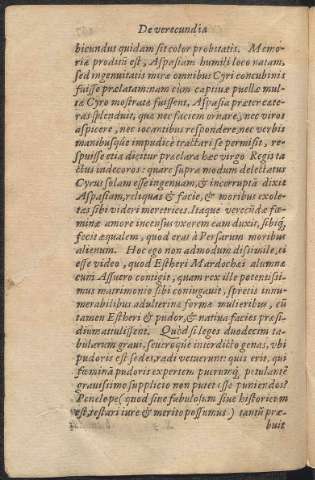 De verecundia
bicundus quidam sit color probitatis. Memo-
riæ proditũ est, Aspasiam humili loco natam,
sed ingenuitatis miræ omnibus Cyri concubinis
fuisse prælatam: nam cùm captiuæ puellæ mul-
tæ Cyro mostratæ fuissent, Aspasia præter cæte-
ras splenduit, quæ nec faciem ornare, nec viros
aspicere, nec vocantibus respondere, nec verbis
manibusq́ue impudicè tractari se permisit, re-
spuisse etiã dicitur præclara hæc virgo Regis ta
ctus indecoros: quare supra modum delectatus
Cyrus solam esse ingenuam, & incorruptã dixit
Aspasiam, reliquas & facie, & moribus exole-
tas sibi videri meretrices. Itaque verecũdæ fœ-
minæ amore incensus vxorem eam duxit, sibiq́;
fecit æqualem, quod erat à Persarum moribus
alienum. Hoc ego non admodum dissimile, ei
esse video, quod Estheri Mardochæi alumnæ
cum Assuero contigit, quam rex ille potentissi-
mus matrimonio sibi coniugauit, spretis innu-
merabilibus adulterinæ formæ mulieribus, cũ
tamen Estheri & pudor, & natiua facies præsi-
dium attulissent. Quòd si leges duodecim ta-
bularum graui, seueroque interdicto genas, vbi
pudoris est sedes, radi vetuerunt: quis erit, qui
fœminã pudoris expertem puerumq́; petulantẽ
grauissimo supplicio non putet esse puniendos?
Penelope (quod siue fabulosum siue historicum
est, testari iure & merito possumus) tantũ præ-
buit